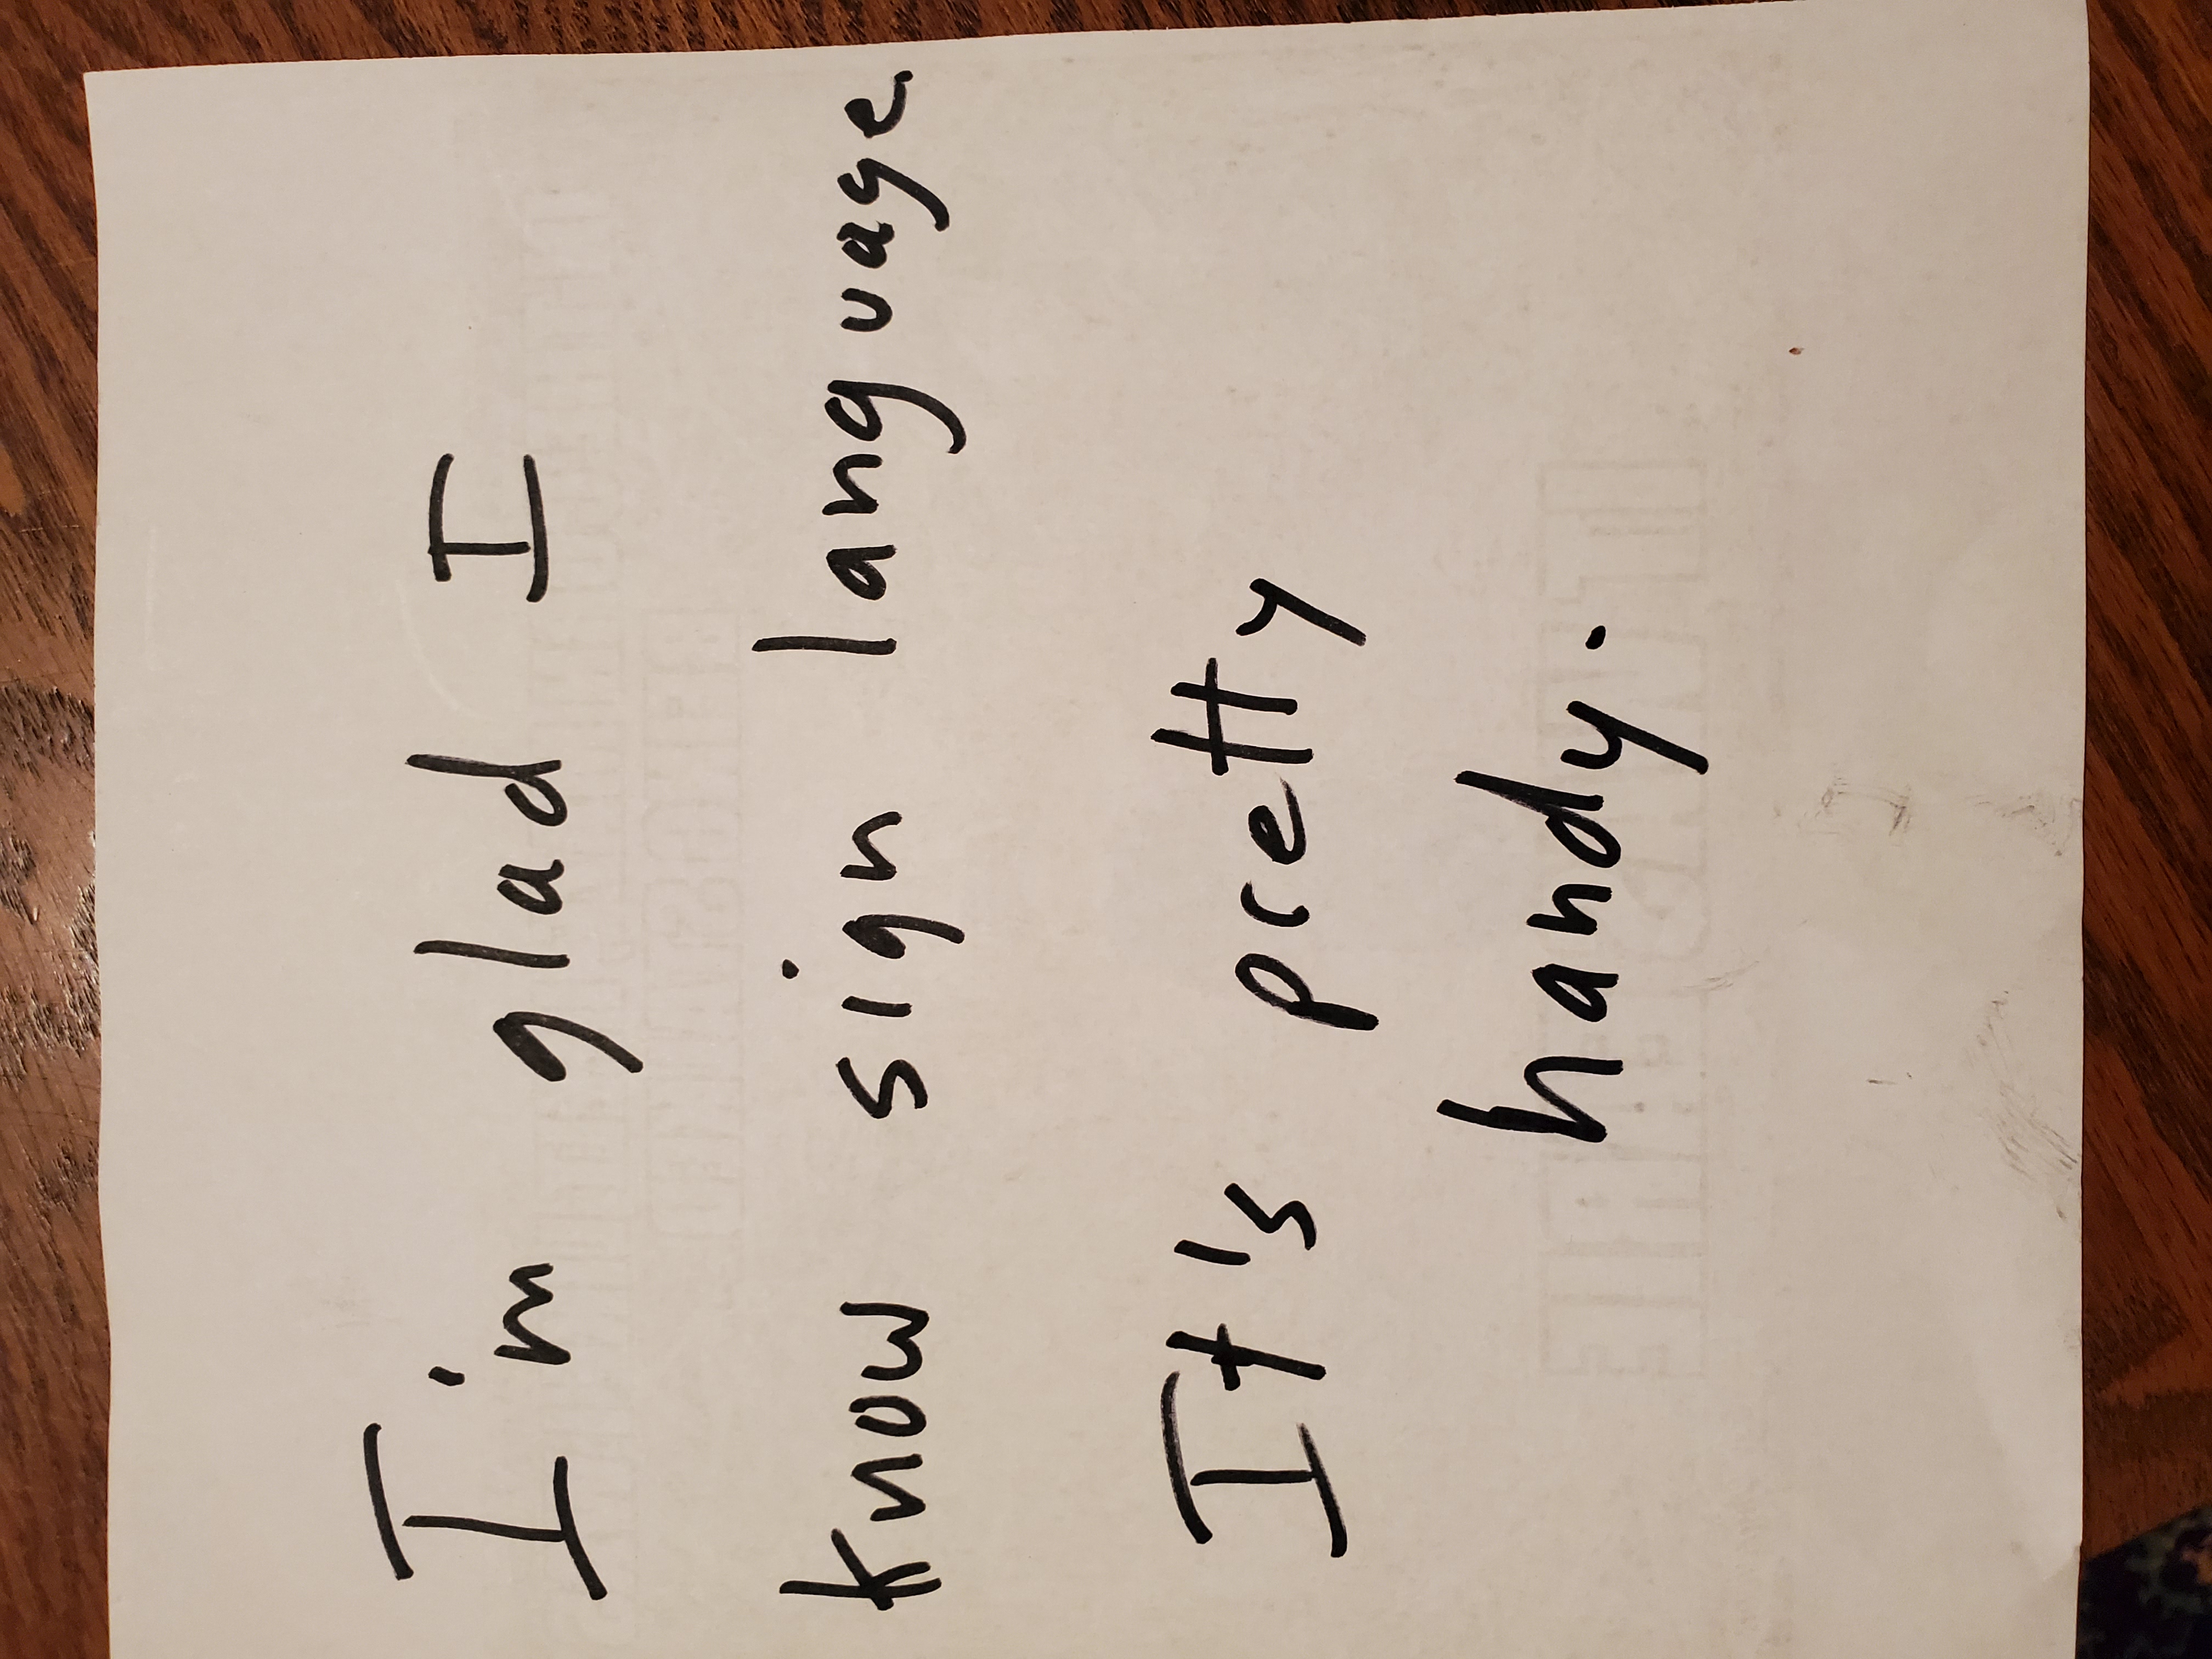 I'm glad I
know sign language.
It's pretty
handy.